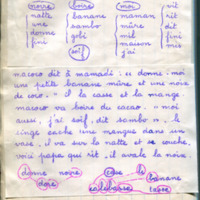 noire boire moi
natte banane maman vit
une sambo mûre rit
donne gebi mil dit
fini soif maison mes
j'ai
macoco dit à mamadi : « donne-moi
une petite banane mûre et une noix
de coco. » il la casse et la mange.
macoco va boire du cacao. « moi
aussi, j'ai soif, dit sambo ». le
singe cache une mangue dans un
vase. il va sur la natte et se couche.
voici papa qui rit. il avale la noix.
donne noire
dore calebasse banane
tasse